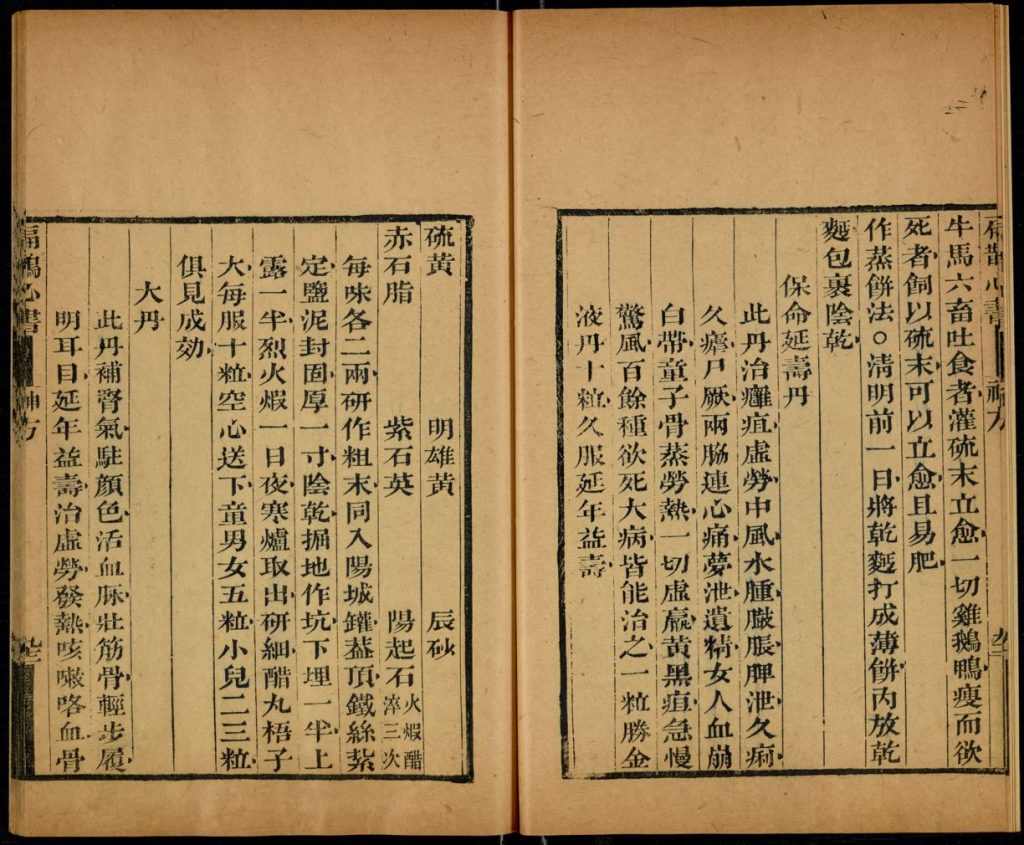 扁鵲心書 神方
牛馬六畜吐食者灌硫末立愈一切雞鵝鴨瘦而欲
死者飼以硫末可以立愈且易肥
作蒸餅法○清明前一日將乾麪打成薄餅內放乾
麪包裹陰乾
保命延壽丹
此丹治癰疽虛勞中風水腫臌脹脾泄久痢
久瘧尸厥兩脇連心痛夢泄遺精女人血崩
白帶童子骨蒸勞熱一切虛羸黃黑疸急慢
驚風百餘種欲死大病皆能治之一粒勝金
液丹十粒久服延年益壽
硫黃 明雄黃 辰砂
赤石脂 紫石英 陽起石火煆醋淬三次
每味各二兩研作粗末同入陽城鑵蓋頂鐵絲紥
定鹽泥封固厚一寸陰乾掘地作坑下埋一半上
露一半烈火煆一日夜寒爐取出研細醋丸梧子
大每服十粒空心送下童男女五粒小兒二三粒
俱見成効
大丹
此丹補腎氣駐顏色活血脉壯筋骨輕步履
明耳目延年益壽治虛勞發熱咳嗽咯血骨
扁鵲心書 神方